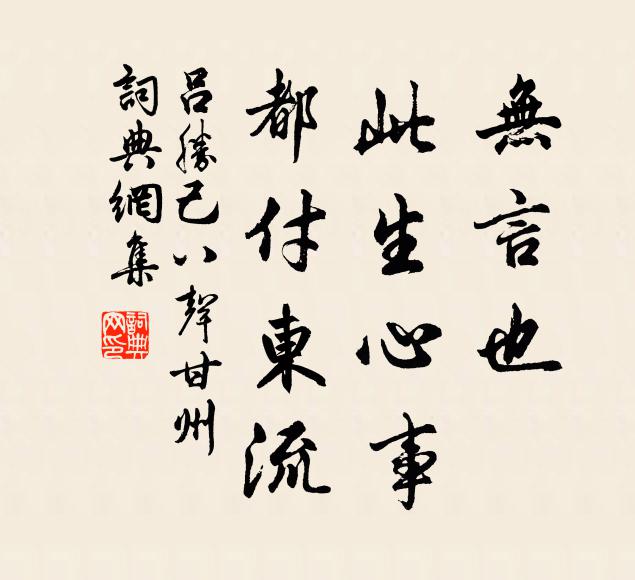 無言也
此生心事
都付東流
呂勝己八聲甘州
詞典網集
詞典網印